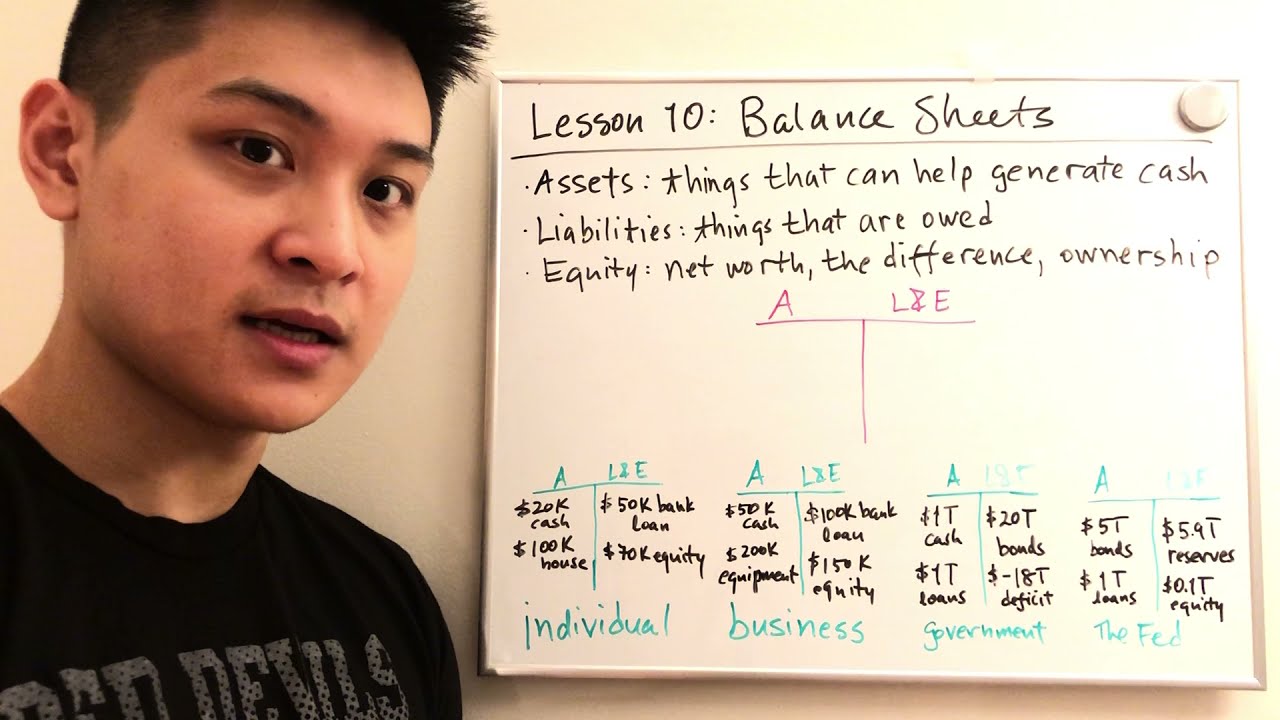 Lesson 10: Balance Sheets
· Assets: things that can help generate cash
· Liabilities: things that are owed
· Equity: net worth, the difference, ownership
A L&E
A L&E
$20K cash $50K bank loan
$100K house $70K equity
individual
A L&E
$50K cash $100K bank loan
$200K equipment $150K equity
business
A L&E
$1T cash $20T bonds
$1T loans $-18T deficit
government
A L&E
$5T bonds $5.9T reserves
$1T loans $0.1T equity
The Fed
RED DEVILS